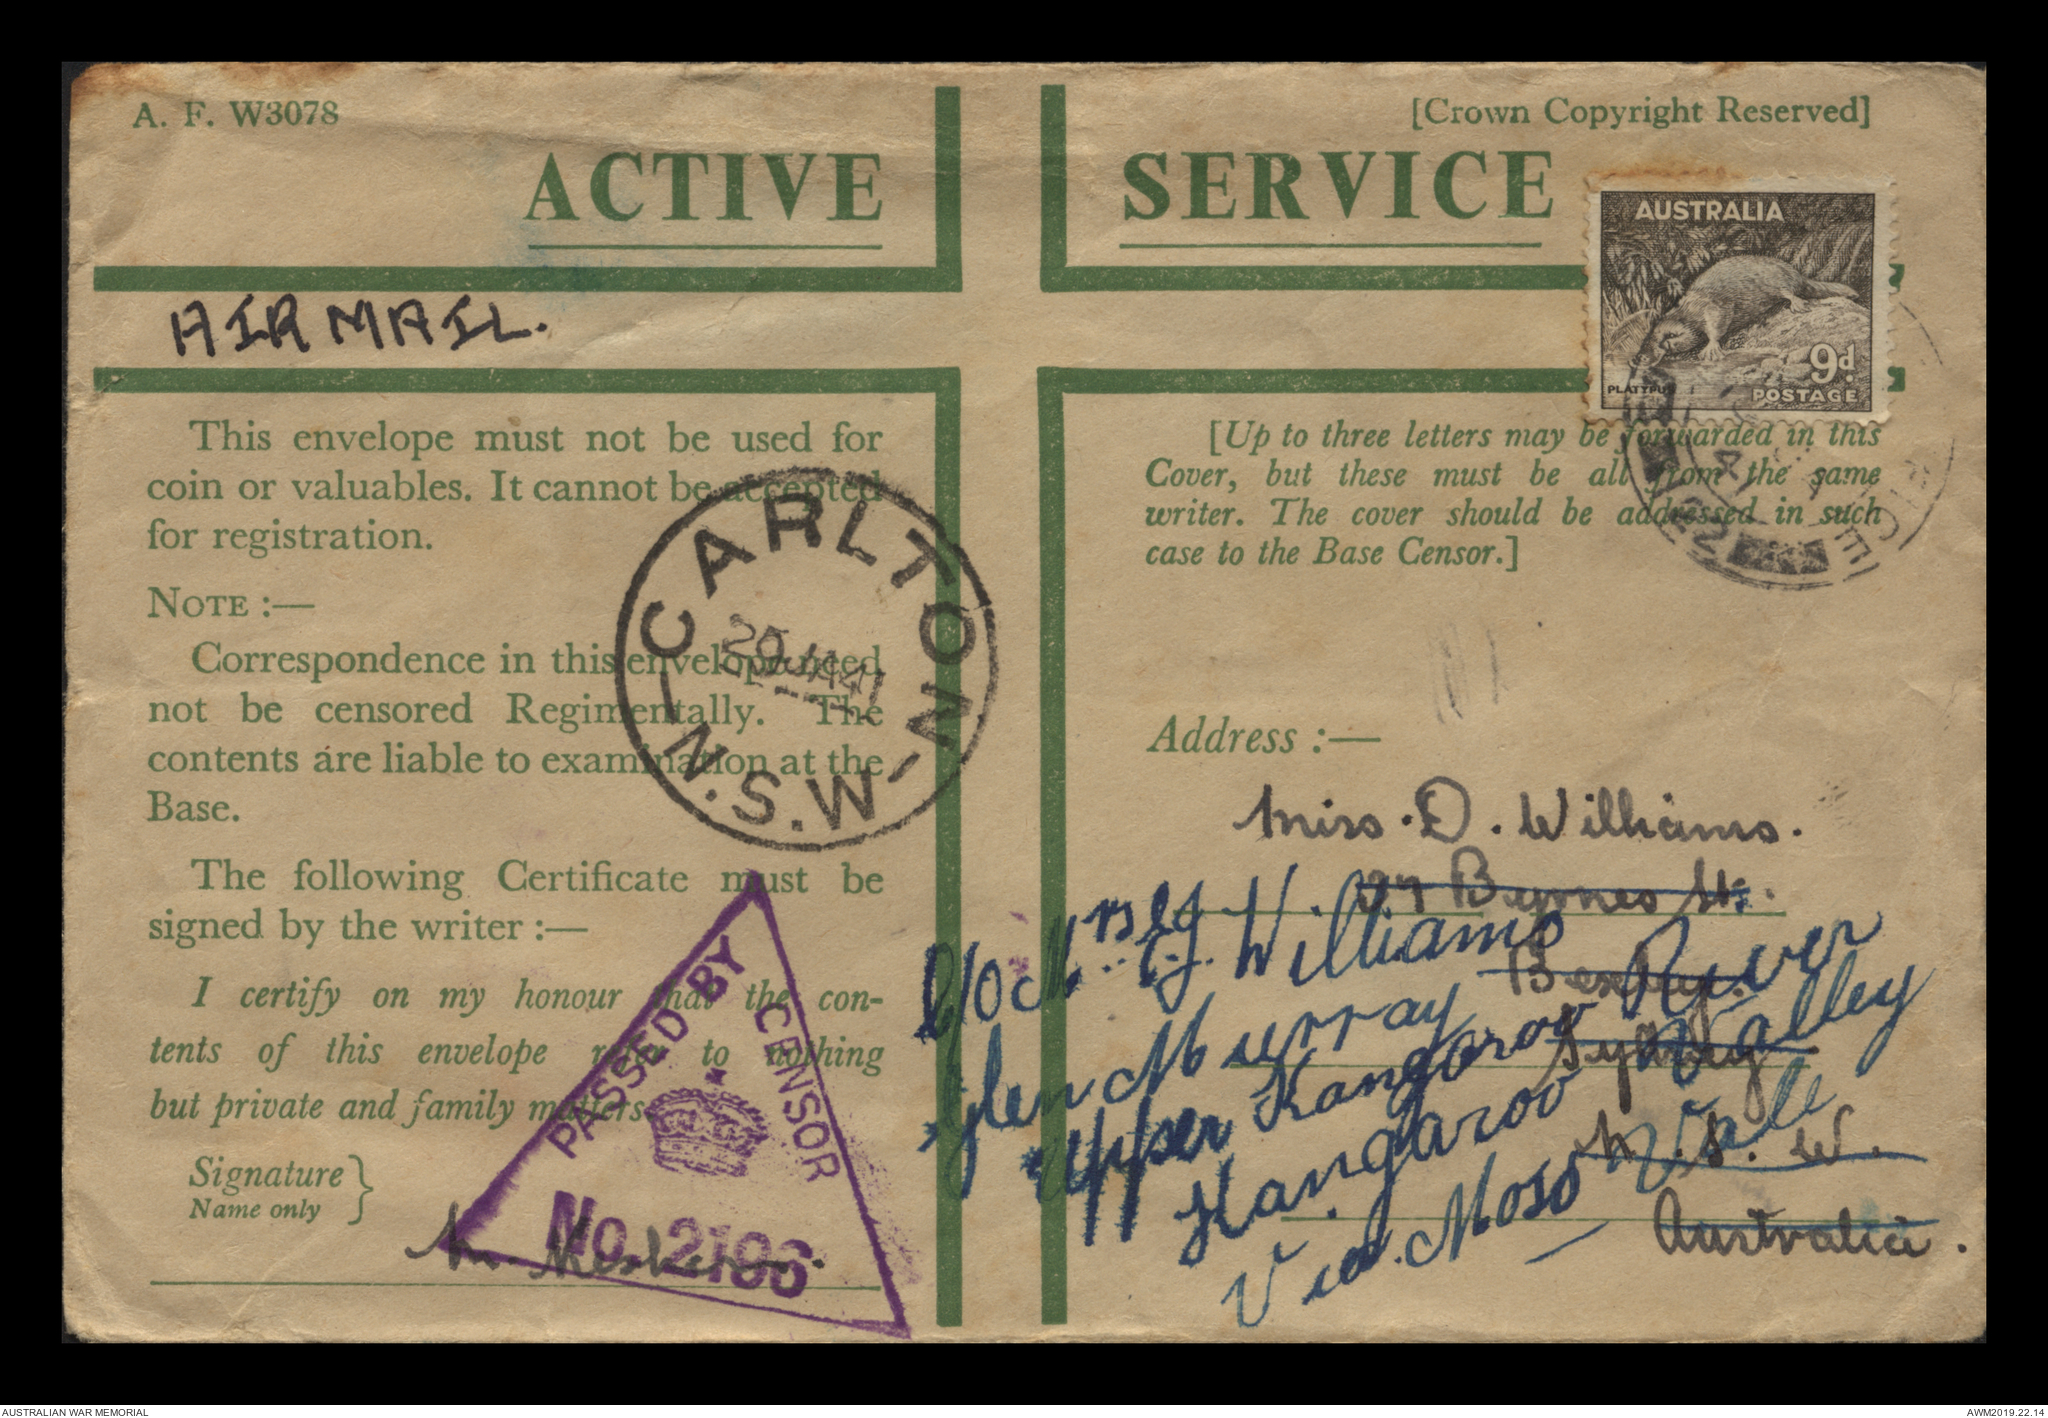 A. F. W3078
[Crown Copyright Reserved]
ACTIVE SERVICE
AUSTRALIA
9d.
PLATYPUS
POSTAGE
AIR MAIL.
This envelope must not be used for
coin or valuables. It cannot be accepted
for registration.
NOTE :—
Correspondence in this envelope need
not be censored Regimentally. The
contents are liable to examination at the
Base.
The following Certificate must be
signed by the writer :—
I certify on my honour that the con-
tents of this envelope refer to nothing
but private and family matters
Signature
Name only
CARLTON
JA 41
N.S.W
PASSED BY CENSOR
No. 2196
[Up to three letters may be forwarded in this
Cover, but these must be all from the same
writer. The cover should be addressed in such
case to the Base Censor.]
Address :—
Miss. D. Williams.
Byrnes St.
Bexley.
Sydney
N. S. W.
Australia.
C/o Mrs E.J. Williams
Glen Murray
Upper Kangaroo River
Kangaroo Valley
Via. Moss Vale
AUSTRALIAN WAR MEMORIAL
AWM2019.22.14